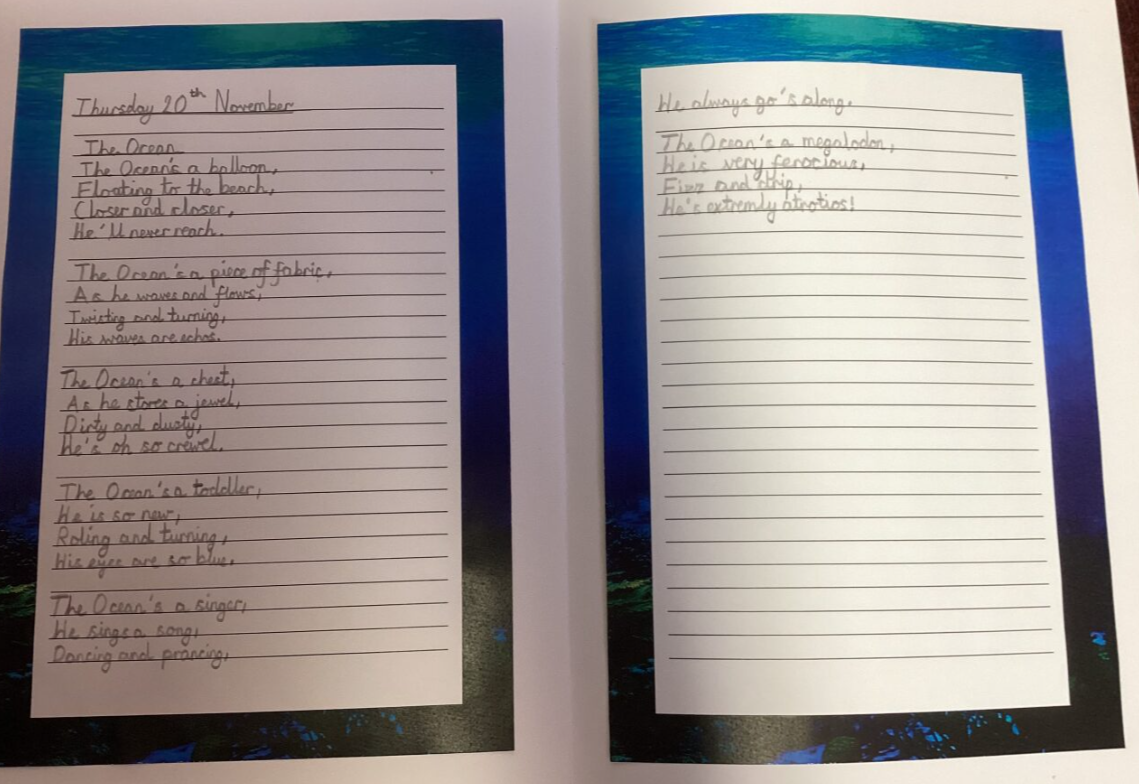 Thursday 20th November
The Ocean
The Ocean's a balloon,
Floating to the beach,
Closer and closer,
He'll never reach.
The Ocean's a piece of fabric,
As he waves and flows,
Twisting and turning,
His waves are echos.
The Ocean's a chest,
As he stores a jewel,
Dirty and dusty,
He's oh so crewel.
The Ocean's a toddler,
He is so new,
Roling and turning,
His eyes are so blue.
The Ocean's a singer,
He sings a song,
Dancing and prancing,
He always go's along.
The Ocean's a megalodon,
He is very ferocious,
Fizz and drip,
He's extremly atrotios!